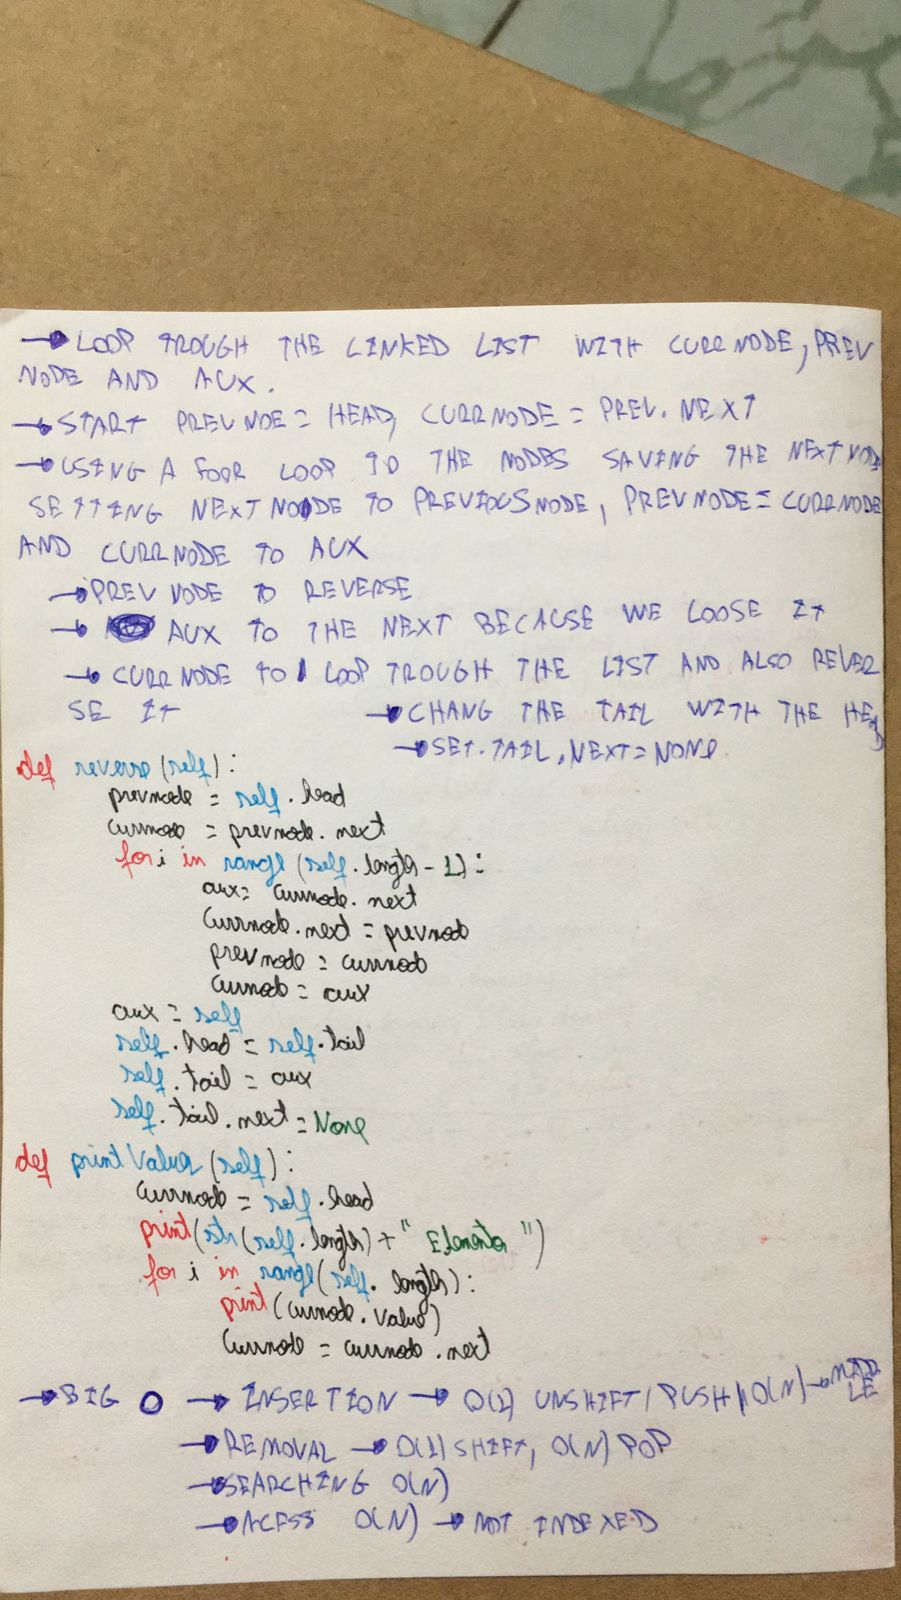 → LOOP TROUGH THE LINKED LIST WITH CURRNODE, PREV
NODE AND AUX.
→ START PREVNOE = HEAD, CURRNODE = PREV. NEXT
→ USING A FOOR LOOP TO THE NODES SAVING THE NEXT NODE
SETTING NEXT NODE TO PREVIOUS NODE, PREVNODE = CURRNODE
AND CURRNODE TO AUX
→ PREV NODE TO REVERSE
→ AUX TO THE NEXT BECAUSE WE LOOSE IT
→ CURRNODE TO LOOP TROUGH THE LIST AND ALSO REVER
SE IT → CHANG THE TAIL WITH THE HEAD
→ SET.TAIL.NEXT = NONE
def reverse (self):
prevnode = self.head
currnode = prevnode.next
for i in range (self.length - 1):
aux = currnode.next
currnode.next = prevnode
prevnode = currnode
currnode = aux
aux = self
self.head = self.tail
self.tail = aux
self.tail.next = None
def printValues (self):
currnode = self.head
print(str(self.length) + " Elementos ")
for i in range(self.length):
print(currnode.value)
currnode = currnode.next
→ BIG O → INSERTION → O(1) UNSHIFT / PUSH || O(N) → MIDD
LE
→ REMOVAL → O(1) SHIFT, O(N) POP
→ SEARCHING O(N)
→ ACESS O(N) → NOT INDEXED